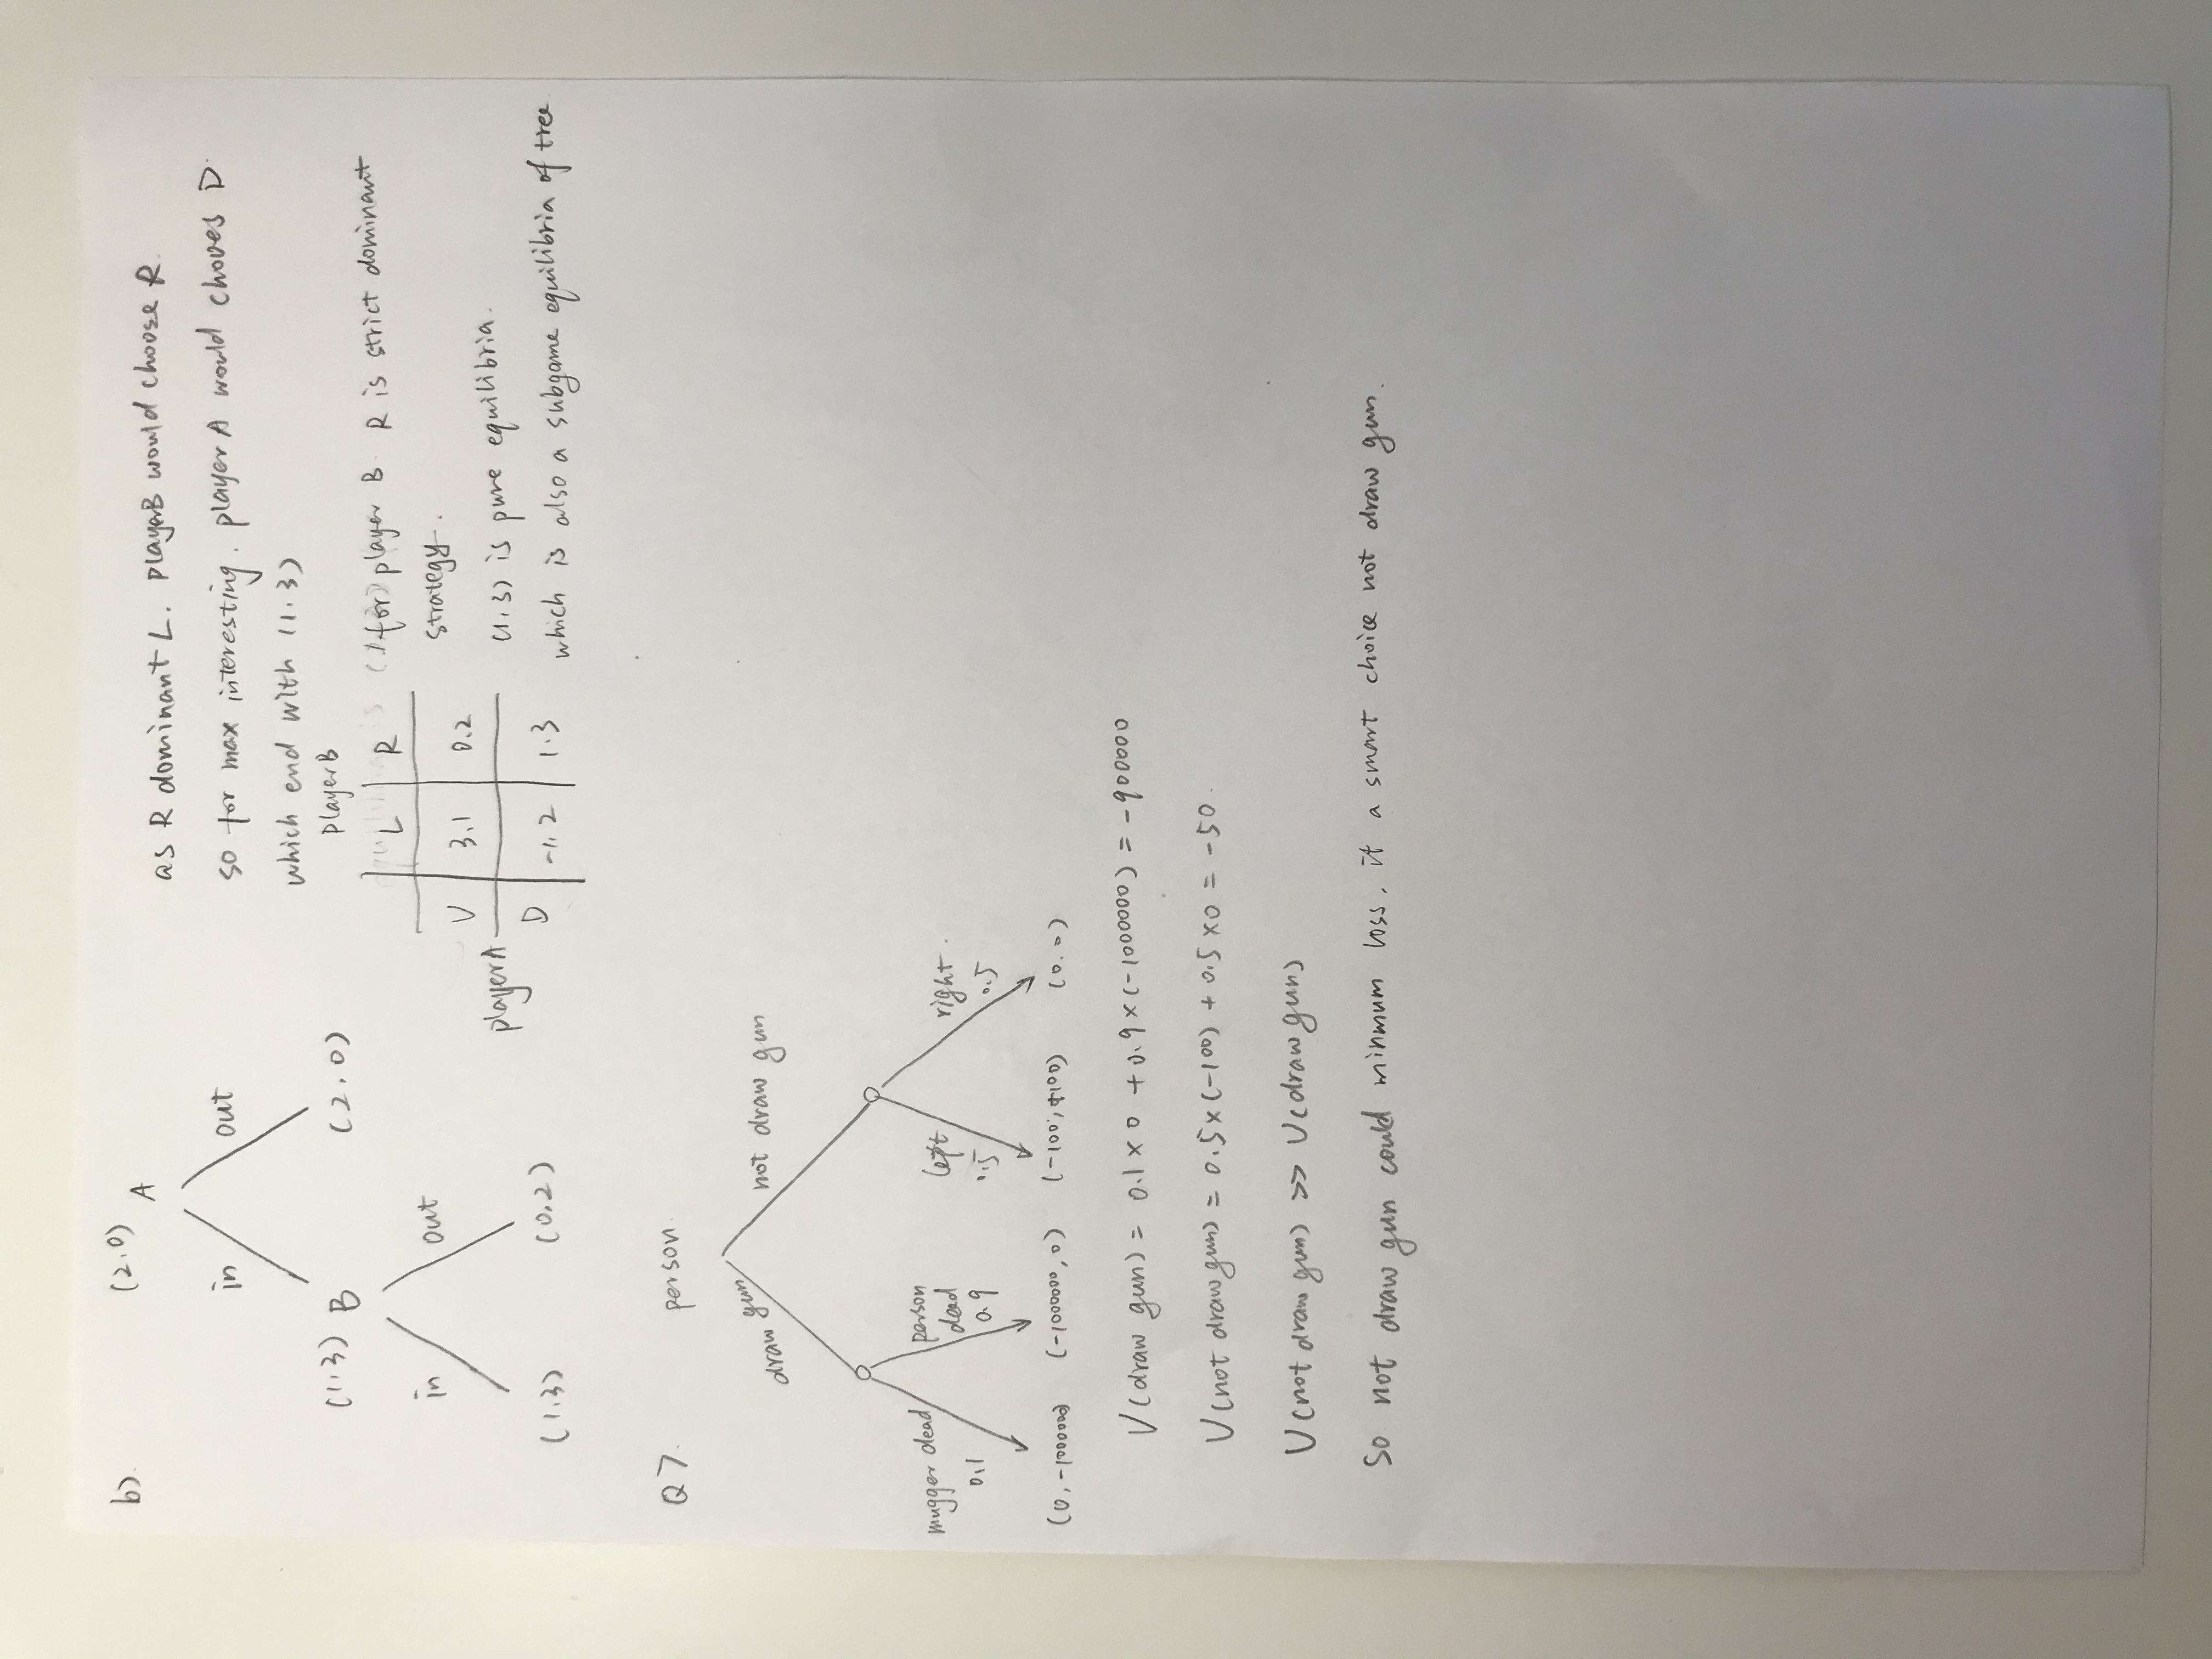 b).
(2.0)
A
in
out
(1.3) B
(2.0)
in
out
(1.3)
(0.2)
as R dominant L. playerB would choose R.
so for max interesting. player A would choves D.
which end with (1.3)
playerB
L R
playerA
U 3.1 0.2
D -1.2 1.3
for player B R is strict dominant
strategy.
(1.3) is pure equilibria.
which is also a subgame equilibria of tree
Q7.
person.
draw gun
not draw gun
mugger dead
0.1
person
dead
0.9
left
0.5
right.
0.5
(0, -1000000) (-1000000, 0) (-100, +100) (0.0)
U(draw gun) = 0.1 × 0 + 0.9 × (-1000000) = -900000
U(not draw gun) = 0.5 × (-100) + 0.5 × 0 = -50.
U(not draw gun) >> U(draw gun)
So not draw gun could minmum loss. it a smart choice not draw gun.